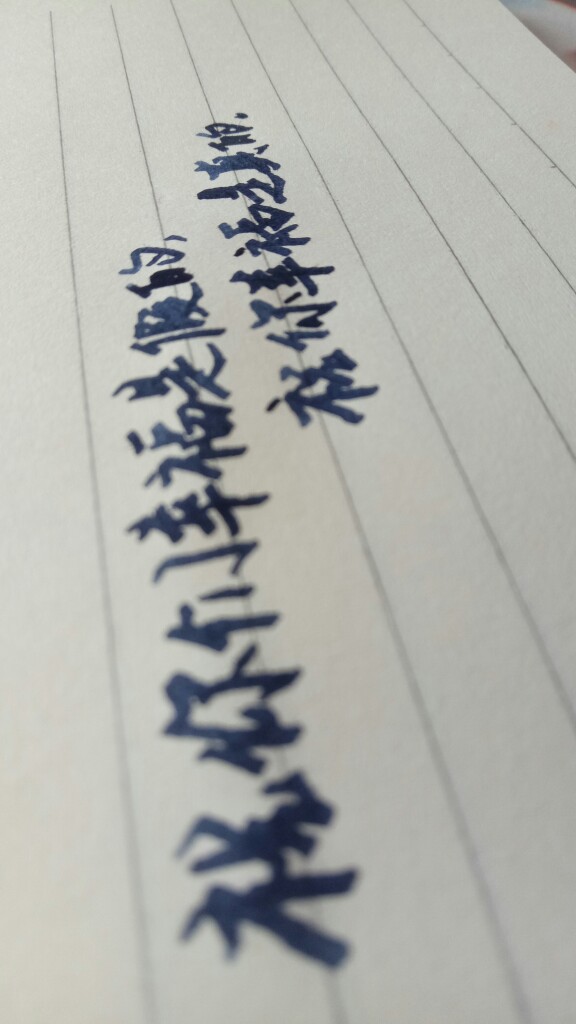 祝你们幸福是假的,
祝你幸福是真的.